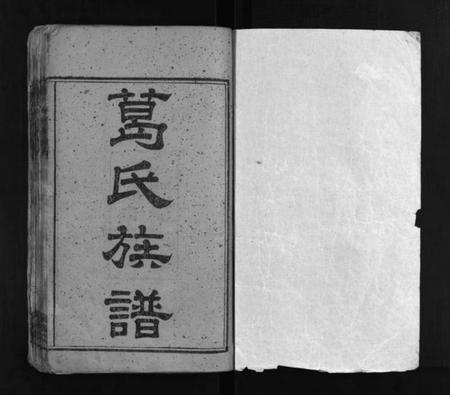 葛氏族譜